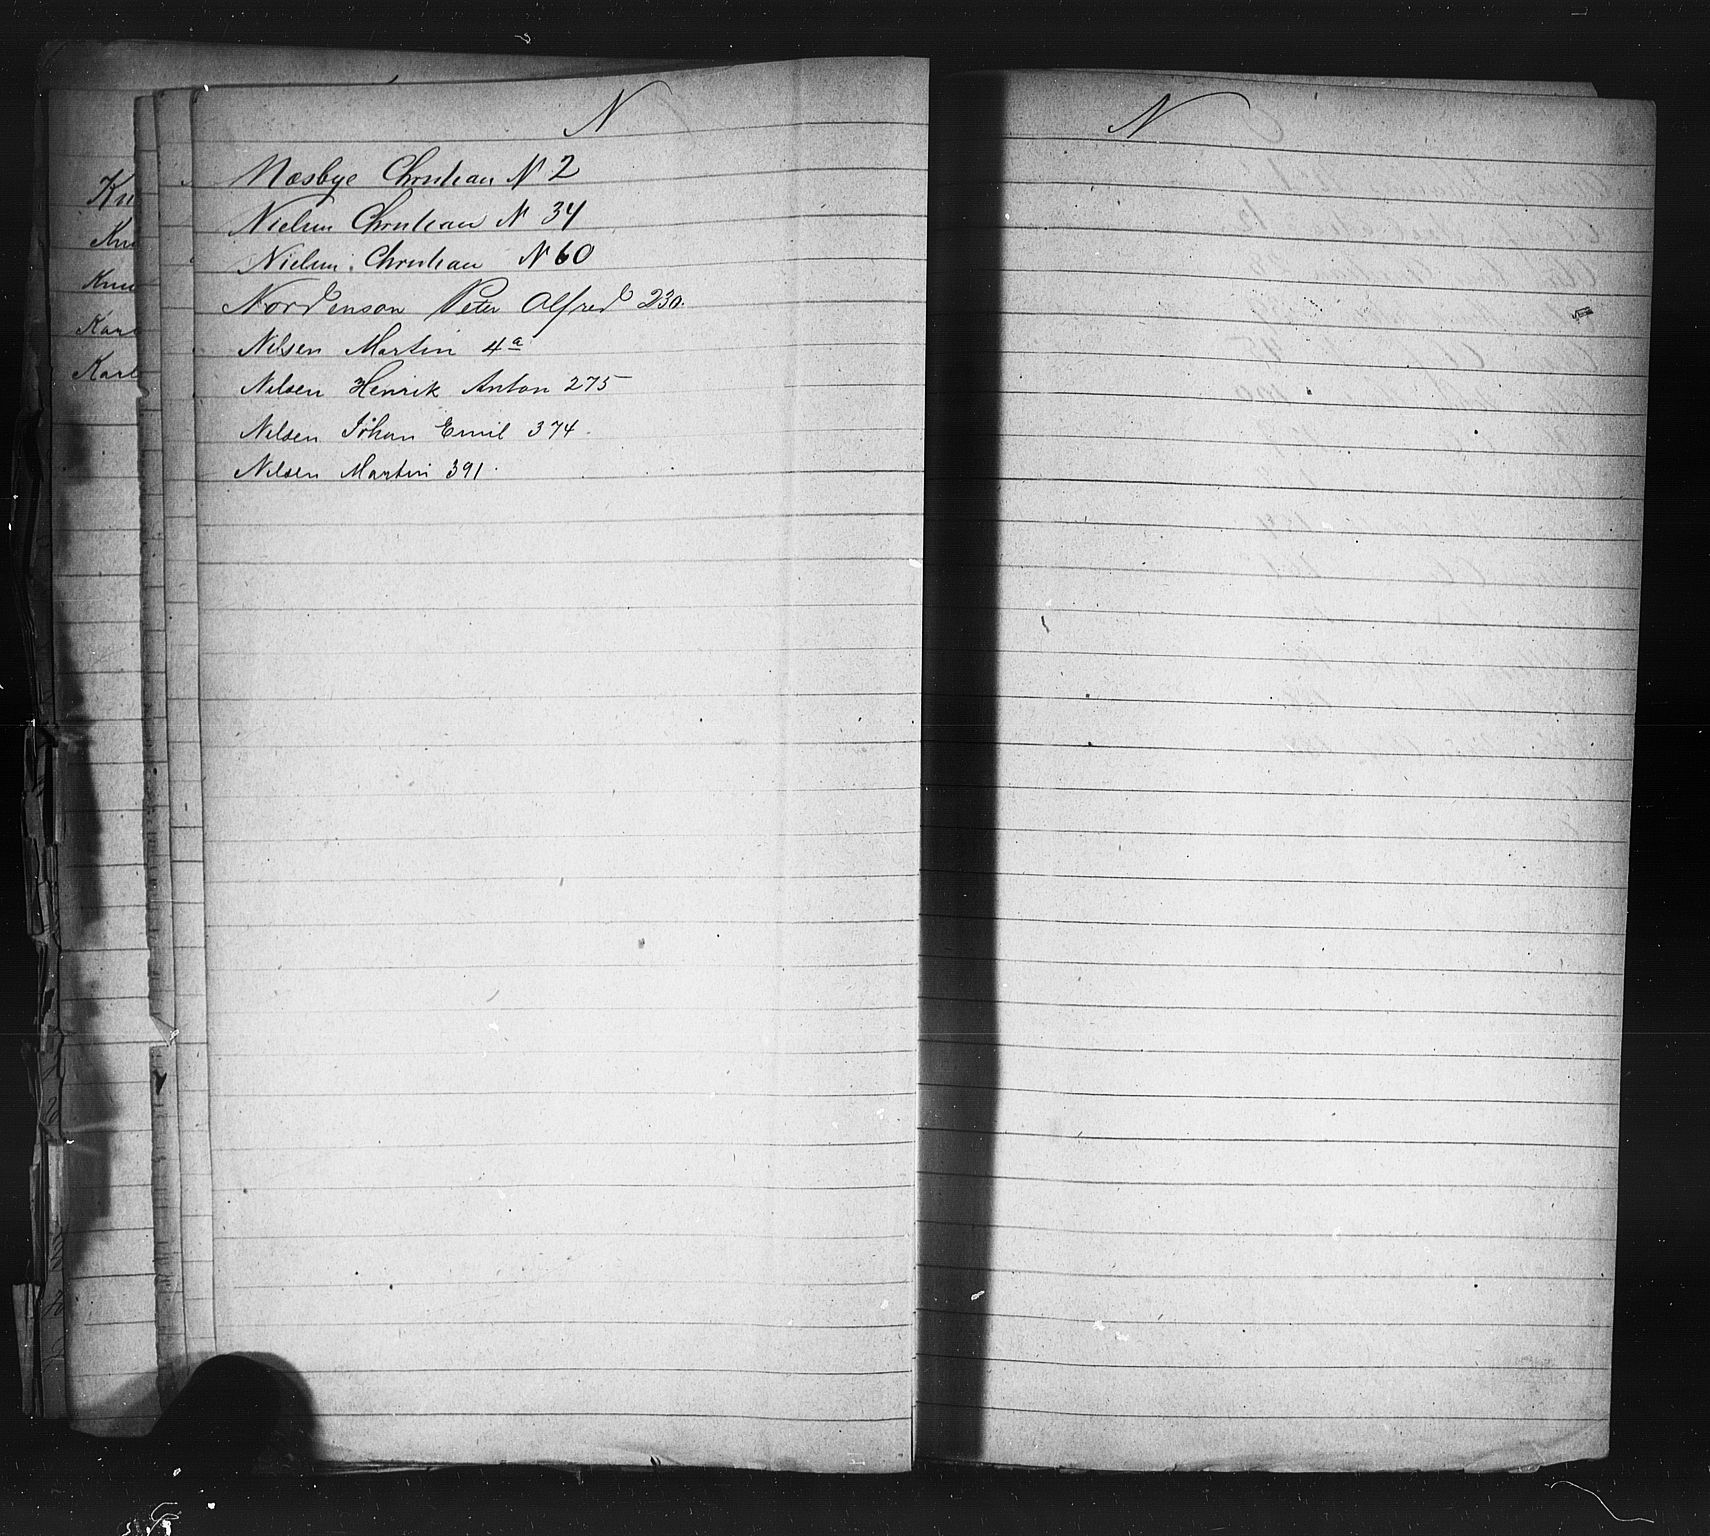 N
Næsbye Christian N 2
Nielsen Christian N 34
Nielsen Christian N 60
Nordenson Peter Alfred 230.
Nilsen Martin 4a
Nilsen Henrik Anton 275
Nilsen Johan Emil 374.
Nilsen Martin 391.
Kn
Knu
Knu
Karl
Karl
N